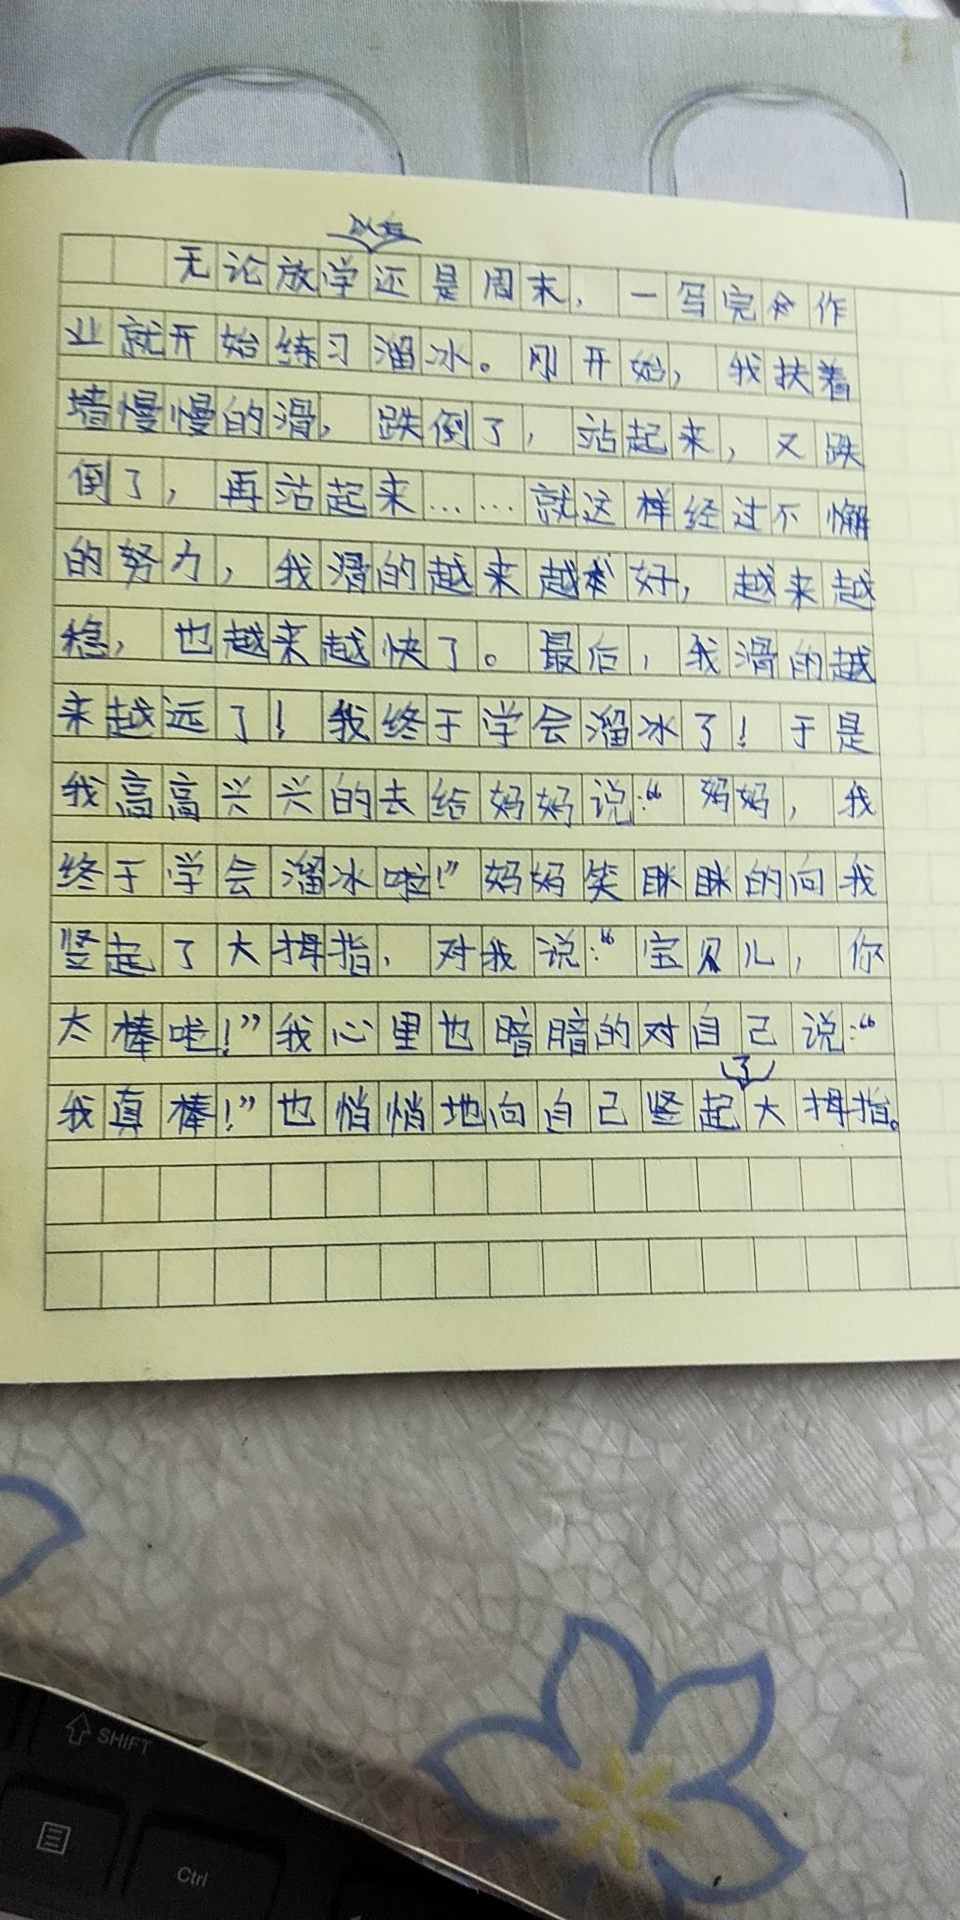 无论放学还是周末，一写完作
业就开始练习溜冰。刚开始，我扶着
墙慢慢的滑，跌倒了，站起来，又跌
倒了，再站起来……就这样经过不懈
的努力，我滑的越来越好，越来越
稳，也越来越快了。最后，我滑的越
来越远了！我终于学会溜冰了！于是
我高高兴兴的去给妈妈说：“妈妈，我
终于学会溜冰啦！”妈妈笑眯眯的向我
竖起了大拇指，对我说：“宝贝儿，你
太棒啦！”我心里也暗暗的对自己说：“
我真棒！”也悄悄地向自己竖起了大拇指。
SHIFT
Ctrl